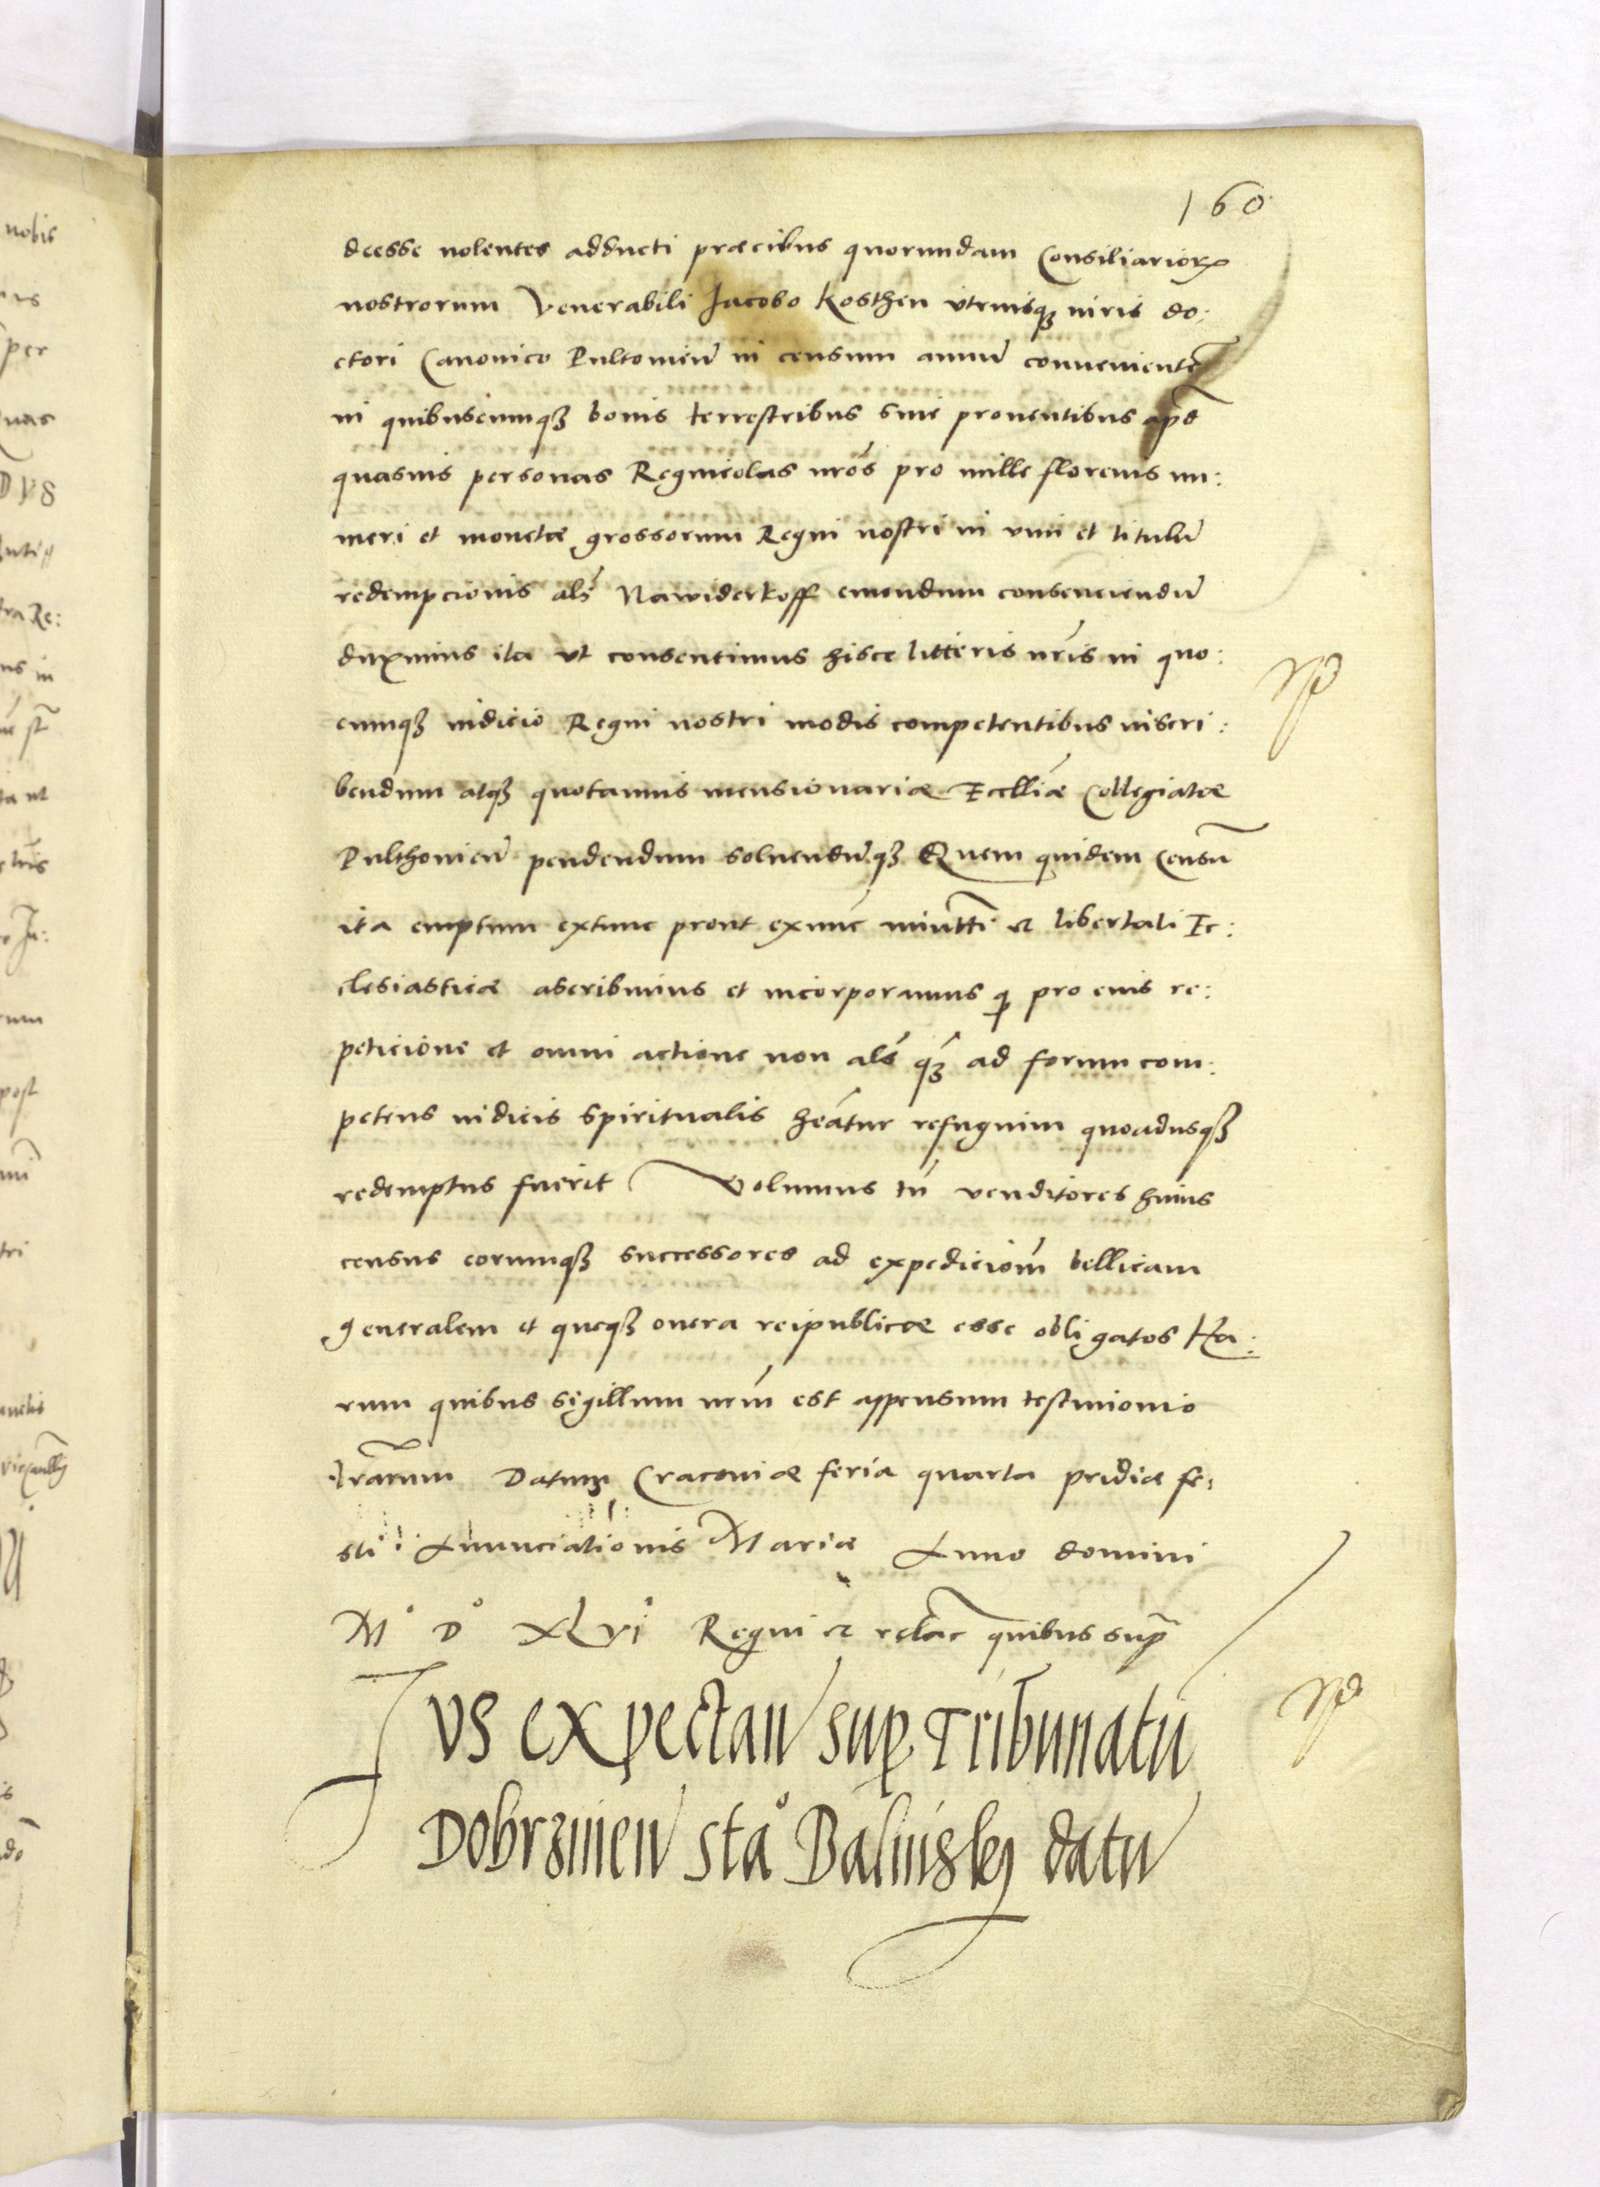 160
deesse nolentes adducti præcibus quorundam Consiliarior
nostrorum Venerabili Jacobo Kosthen utriusq iuris do:
ctori Canonico Pultovien in censum annuũ convenientẽ
in quibuscumq bonis terrestribus sive proventibus apd
quasvis personas Regnicolas nr̃os pro mille florenis nu:
meri et monetæ grossorum Regni nostri in vim et titulũ
redempcionis als Nawiderkoff emendum consenciendũ
duximus ita ut consentimus hisce litteris nr̃is in quo:
cumq iudicio Regni nostri modis competentibus inscri:
bendum atq quotannis mensionariæ Eccl̃iæ Collegiatæ
Pulthovien pendendum solvendũq Quem quidem Censũ
ita emptum extunc prout exnunc et libertati Ec:
clesiasticæ ascribimus et incorporamus q pro eius re:
peticione et omni actione non als q̃ ad forum com:
petens iudicis spiritualis hẽatur refugium quoadusq
redemptus fuerit Volumus tñ venditores huius
census eorumq successores ad expedicioñ bellicam
generalem et queq onera reipublicæ esse obligatos Ha:
rum quibus sigillum nr̃m est appensum testimonio
lr̃arum Datum Cracoviæ feria quarta pridiæ fe:
sti Annunciationis Mariæ Anno domini
M° D° XLVI Regni et relac̃ quibus sup̃
Jus expectan̄ sup Tribunatũ
Dobrzinen̄ sta° Balinskÿ datũ